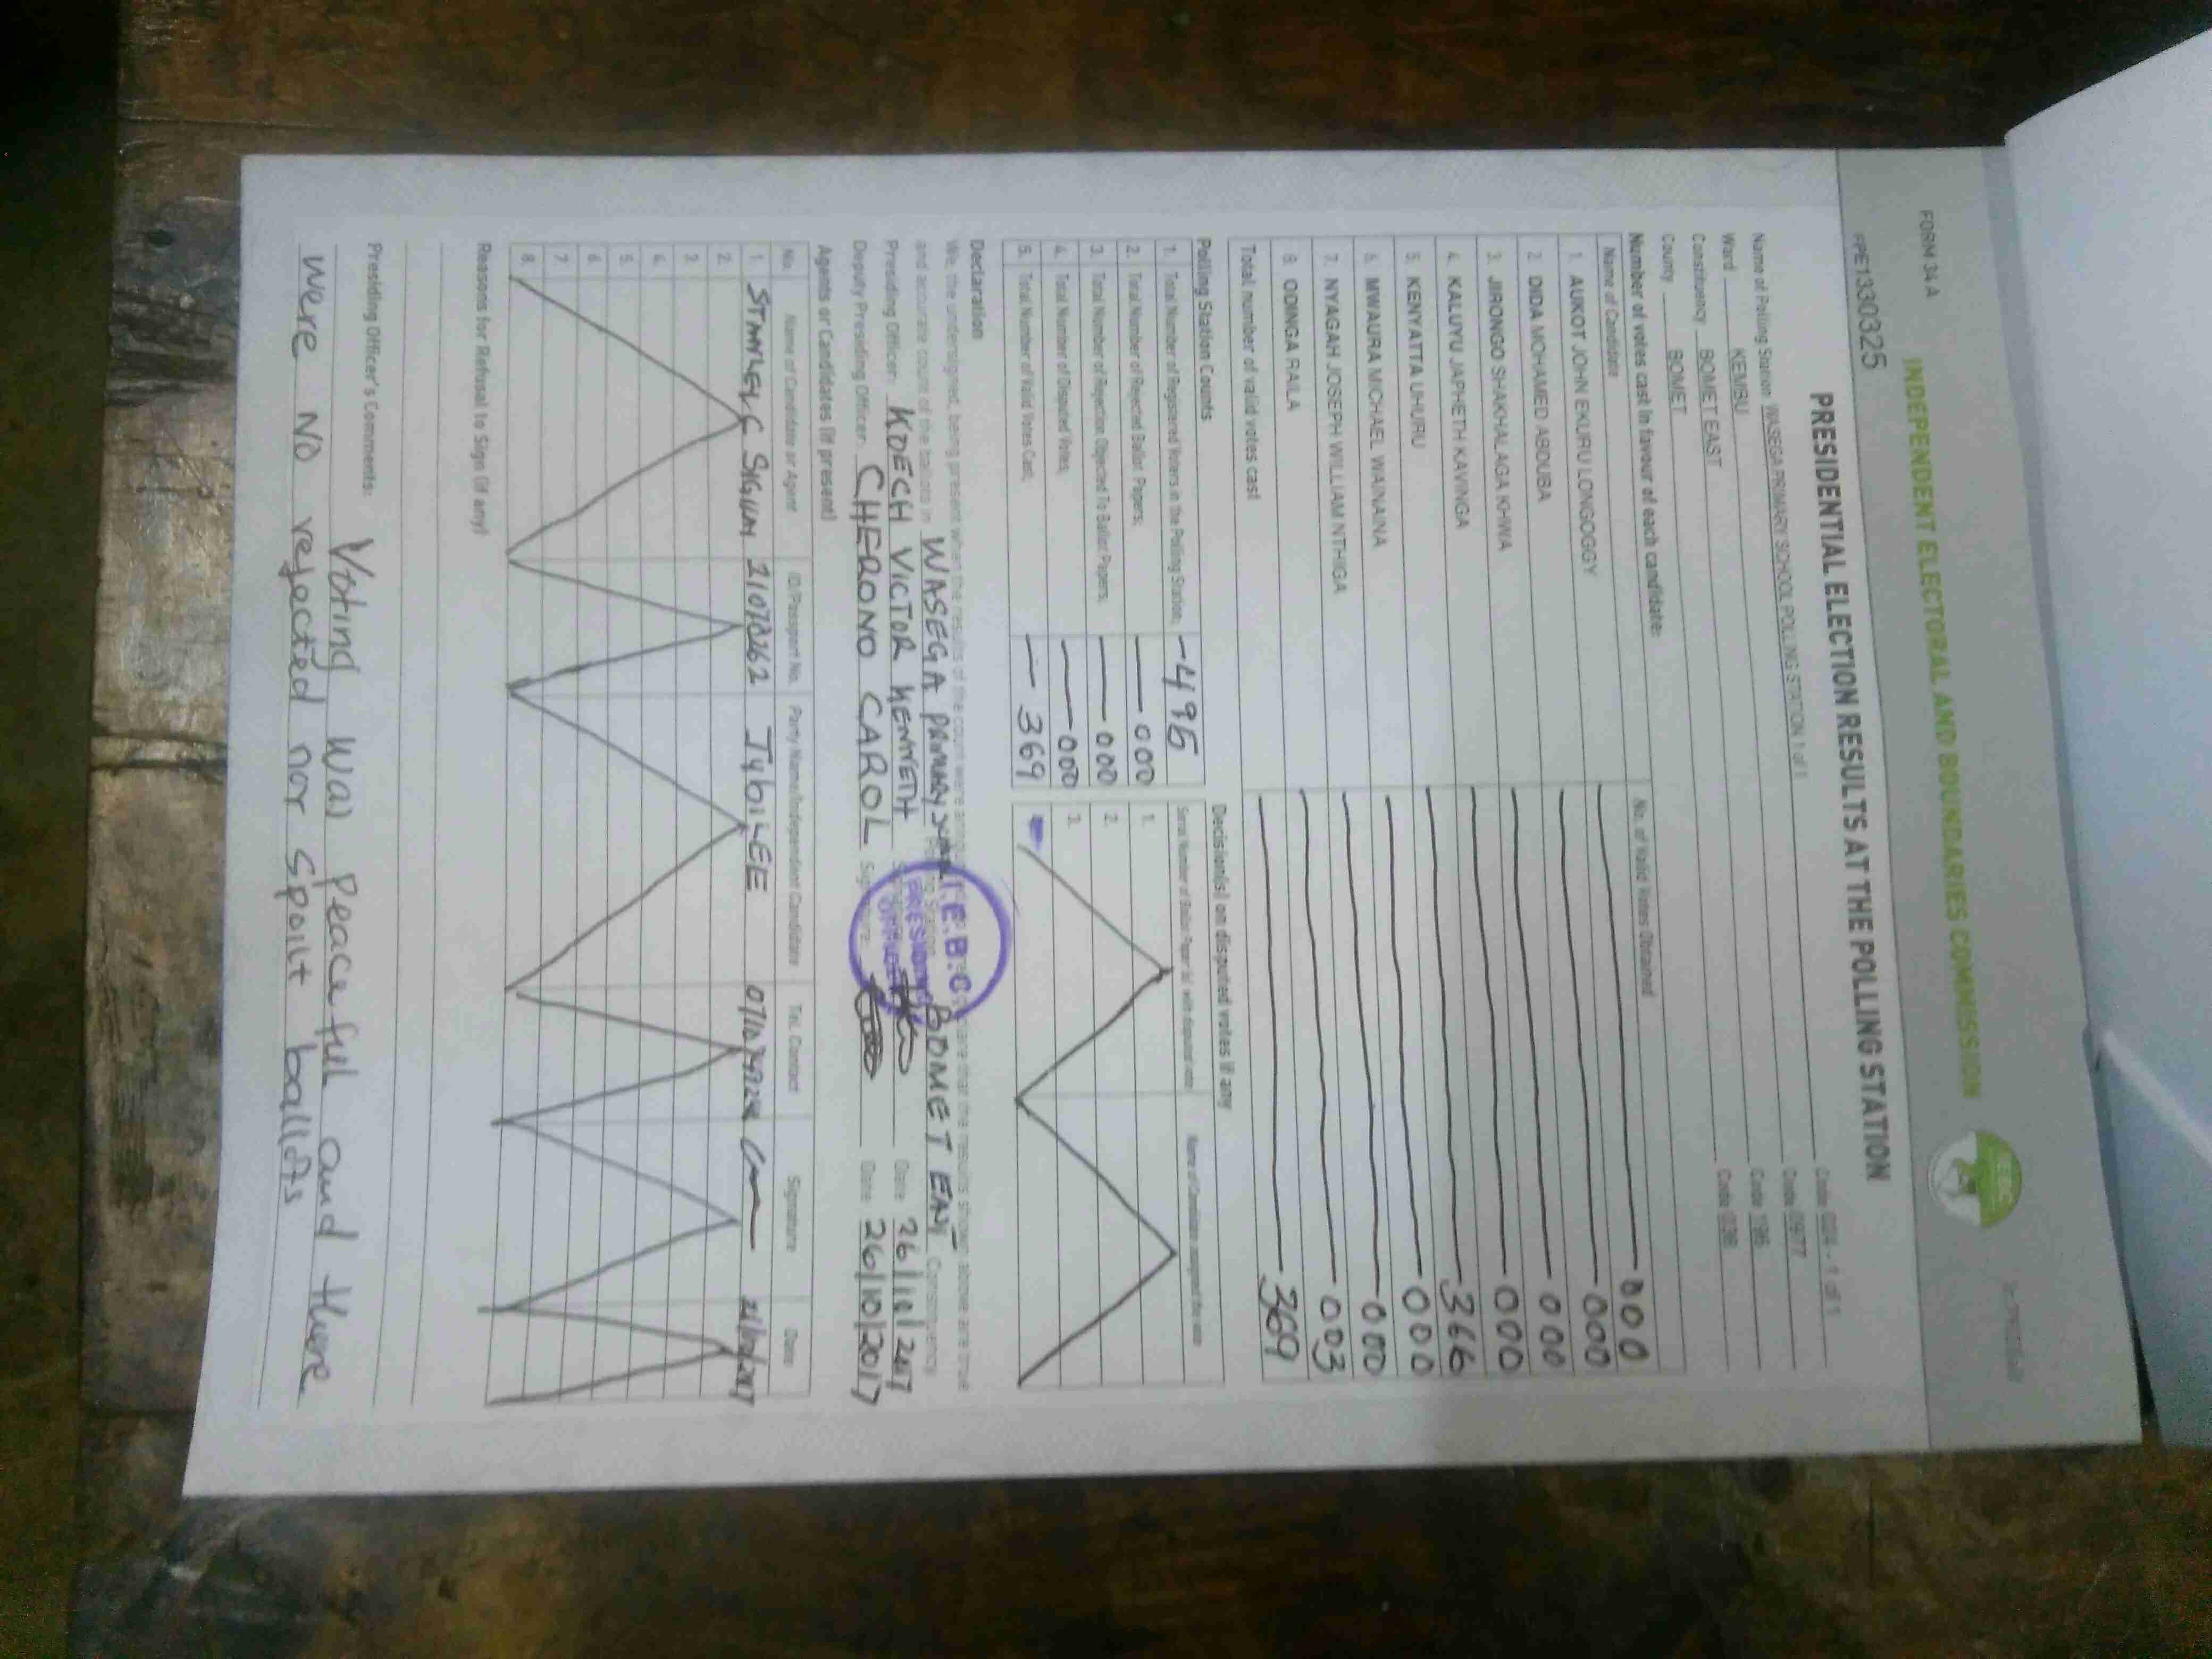 FORM 34 A
INDEPENDENT ELECTORAL AND BOUNDARIES COMMISSION
IEBC
PPE1330325
PRESIDENTIAL ELECTION RESULTS AT THE POLLING STATION
Name of Polling Station WASEGA PRIMARY SCHOOL POLLING STATION 1 of 1 Code 024 - 1 of 1
Ward KEMBU Code 0977
Constituency BOMET EAST Code 195
County BOMET Code 036
Number of votes cast in favour of each candidate:
Name of Candidate No. of Valid Votes Obtained
1. AUKOT JOHN EKURU LONGOGGY 000
2. DIDA MOHAMED ABDUBA 000
3. JIRONGO SHAKHALAGA KHWA 000
4. KALUYU JAPHETH KAVINGA 000
5. KENYATTA UHURU 366
6. MWAURA MICHAEL WAINAINA 000
7. NYAGAH JOSEPH WILLIAM NTHIGA 000
8. ODINGA RAILA 003
Total number of valid votes cast 369
Polling Station Counts Decision(s) on disputed votes if any
1. Total Number of Registered Voters in the Polling Station; 495
2. Total Number of Rejected Ballot Papers; 000
3. Total Number of Rejection Objected To Ballot Papers; 000
4. Total Number of Disputed Votes; 000
5. Total Number of Valid Votes Cast; 369
Serial Number of Ballot Paper (s) with disputed vote Name of Candidate assigned the vote
1.
2.
3.
Declaration
We, the undersigned, being present when the results of the count were announced declare that the results shown above are true
and accurate count of the ballots in WASEGA PRIMARY BOMET EAST Constituency
Presiding Officer: KOECH VICTOR KENNETH Date 26/10/2017
Deputy Presiding Officer: CHERONO CAROL Signature Date 26/10/2017
I.E.B.C.
PRESIDING
OFFICER
Agents or Candidates (if present)
No. Name of Candidate or Agent ID/Passport No. Party Name/Independent Candidate Tel. Contact Signature Date
1. STANLEY C SIGUEI 21072262 JUBILEE 26/10/2017
2.
3.
4.
5.
6.
7.
8.
Reasons for Refusal to Sign (if any)
Presiding Officer's Comments: Voting was peaceful and there
were no rejected nor spoilt ballots